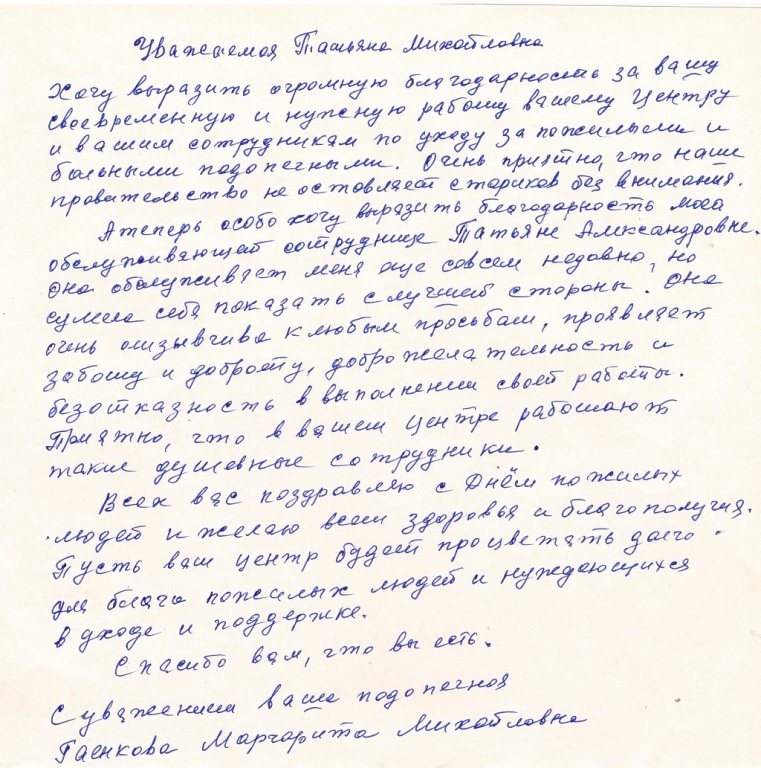 Уважаемая Татьяна Михайловна
Хочу выразить огромную благодарность за вашу
своевременную и нужную работу вашему Центру
и вашим сотрудникам по уходу за пожилыми и
больными подопечными. Очень приятно, что наше
правительство не оставляет стариков без внимания.
А теперь особо хочу выразить благодарность моей
обслуживающей сотруднице Татьяне Александровне.
Она обслуживает меня еще совсем недавно, но
сумела себя показать с лучшей стороны. Она
очень отзывчива к любым просьбам, проявляет
заботу и доброту, доброжелательность и
безотказность в выполнении своей работы.
Приятно, что в вашем центре работают
такие душевные сотрудники.
Всех вас поздравляю с Днём пожилых
людей и желаю всем здоровья и благополучия.
Пусть ваш центр будет процветать долго
для блага пожилых людей и нуждающихся
в уходе и поддержке.
Спасибо вам, что вы есть.
С уважением ваша подопечная
Гаенкова Маргарита Михайловна